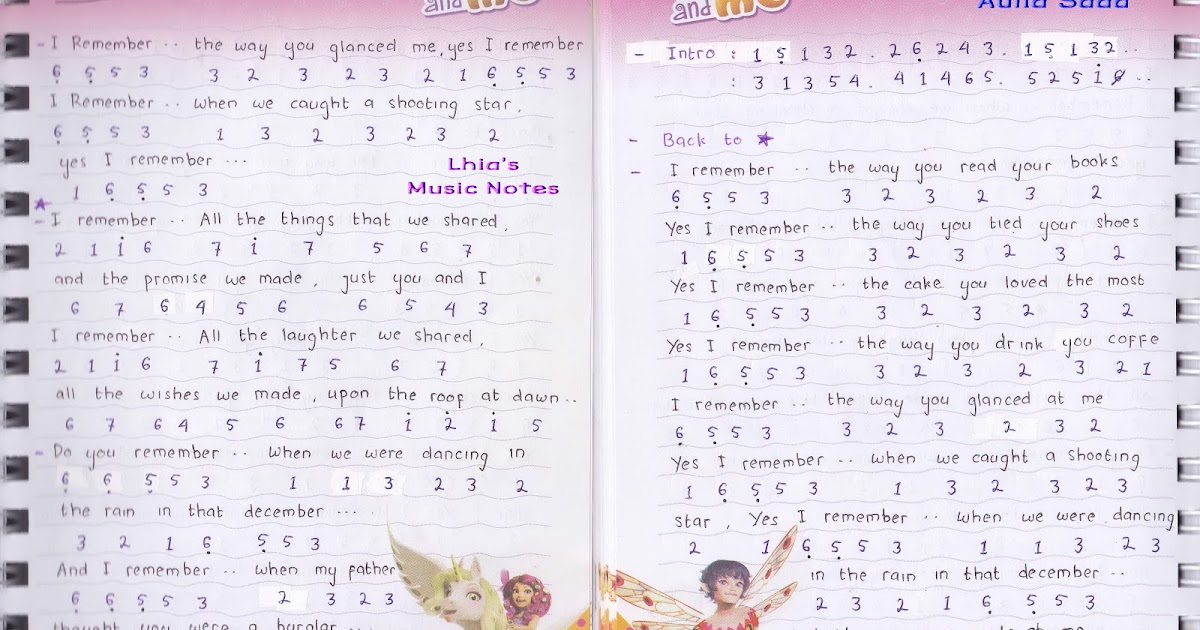 and
- I Remember .. the way you glanced me, yes I remember
6 5 5 3 3 2 3 2 3 2 1 6 5 5 3
I Remember .. when we caught a shooting star,
6 5 5 3 1 3 2 3 2 3 2
yes I remember ...
1 6 5 5 3
Lhia's
Music Notes
★
- I remember .. All the things that we shared,
2 1 i 6 7 i 7 5 6 7
and the promise we made, just you and I
6 7 6 4 5 6 6 5 4 3
I remember .. All the laughter we shared,
2 1 i 6 7 i 7 5 6 7
all the wishes we made, upon the roof at dawn..
6 7 6 4 5 6 6 7 i 2 i 5
- Do you remember .. when we were dancing in
6 6 5 5 3 1 1 3 2 3 2
the rain in that december ....
3 2 1 6 5 5 3
And I remember .. when my father
6 6 5 5 3 2 3 2 3
thought you were a burglar ...
and
- Intro : 1 5 1 3 2 . 2 6 2 4 3 . 1 5 1 3 2 ..
: 3 1 3 5 4 . 4 1 4 6 5 . 5 2 5 i ..
- Back to ★
- I remember .. the way you read your books
6 5 5 3 3 2 3 2 3 2
Yes I remember .. the way you tied your shoes
1 6 5 5 3 3 2 3 2 3 2
Yes I remember .. the cake you loved the most
1 6 5 5 3 3 2 3 2 3 2
Yes I remember .. the way you drink you coffe
1 6 5 5 3 3 2 3 2 3 2 1
I remember .. the way you glanced at me
6 5 5 3 3 2 3 2 3 2
Yes I remember .. when we caught a shooting
1 6 5 5 3 1 3 2 3 2 3
star, Yes I remember .. when we were dancing
2 1 6 5 5 3 1 1 3 2 3
in the rain in that december ..
2 3 2 1 6 5 5 3